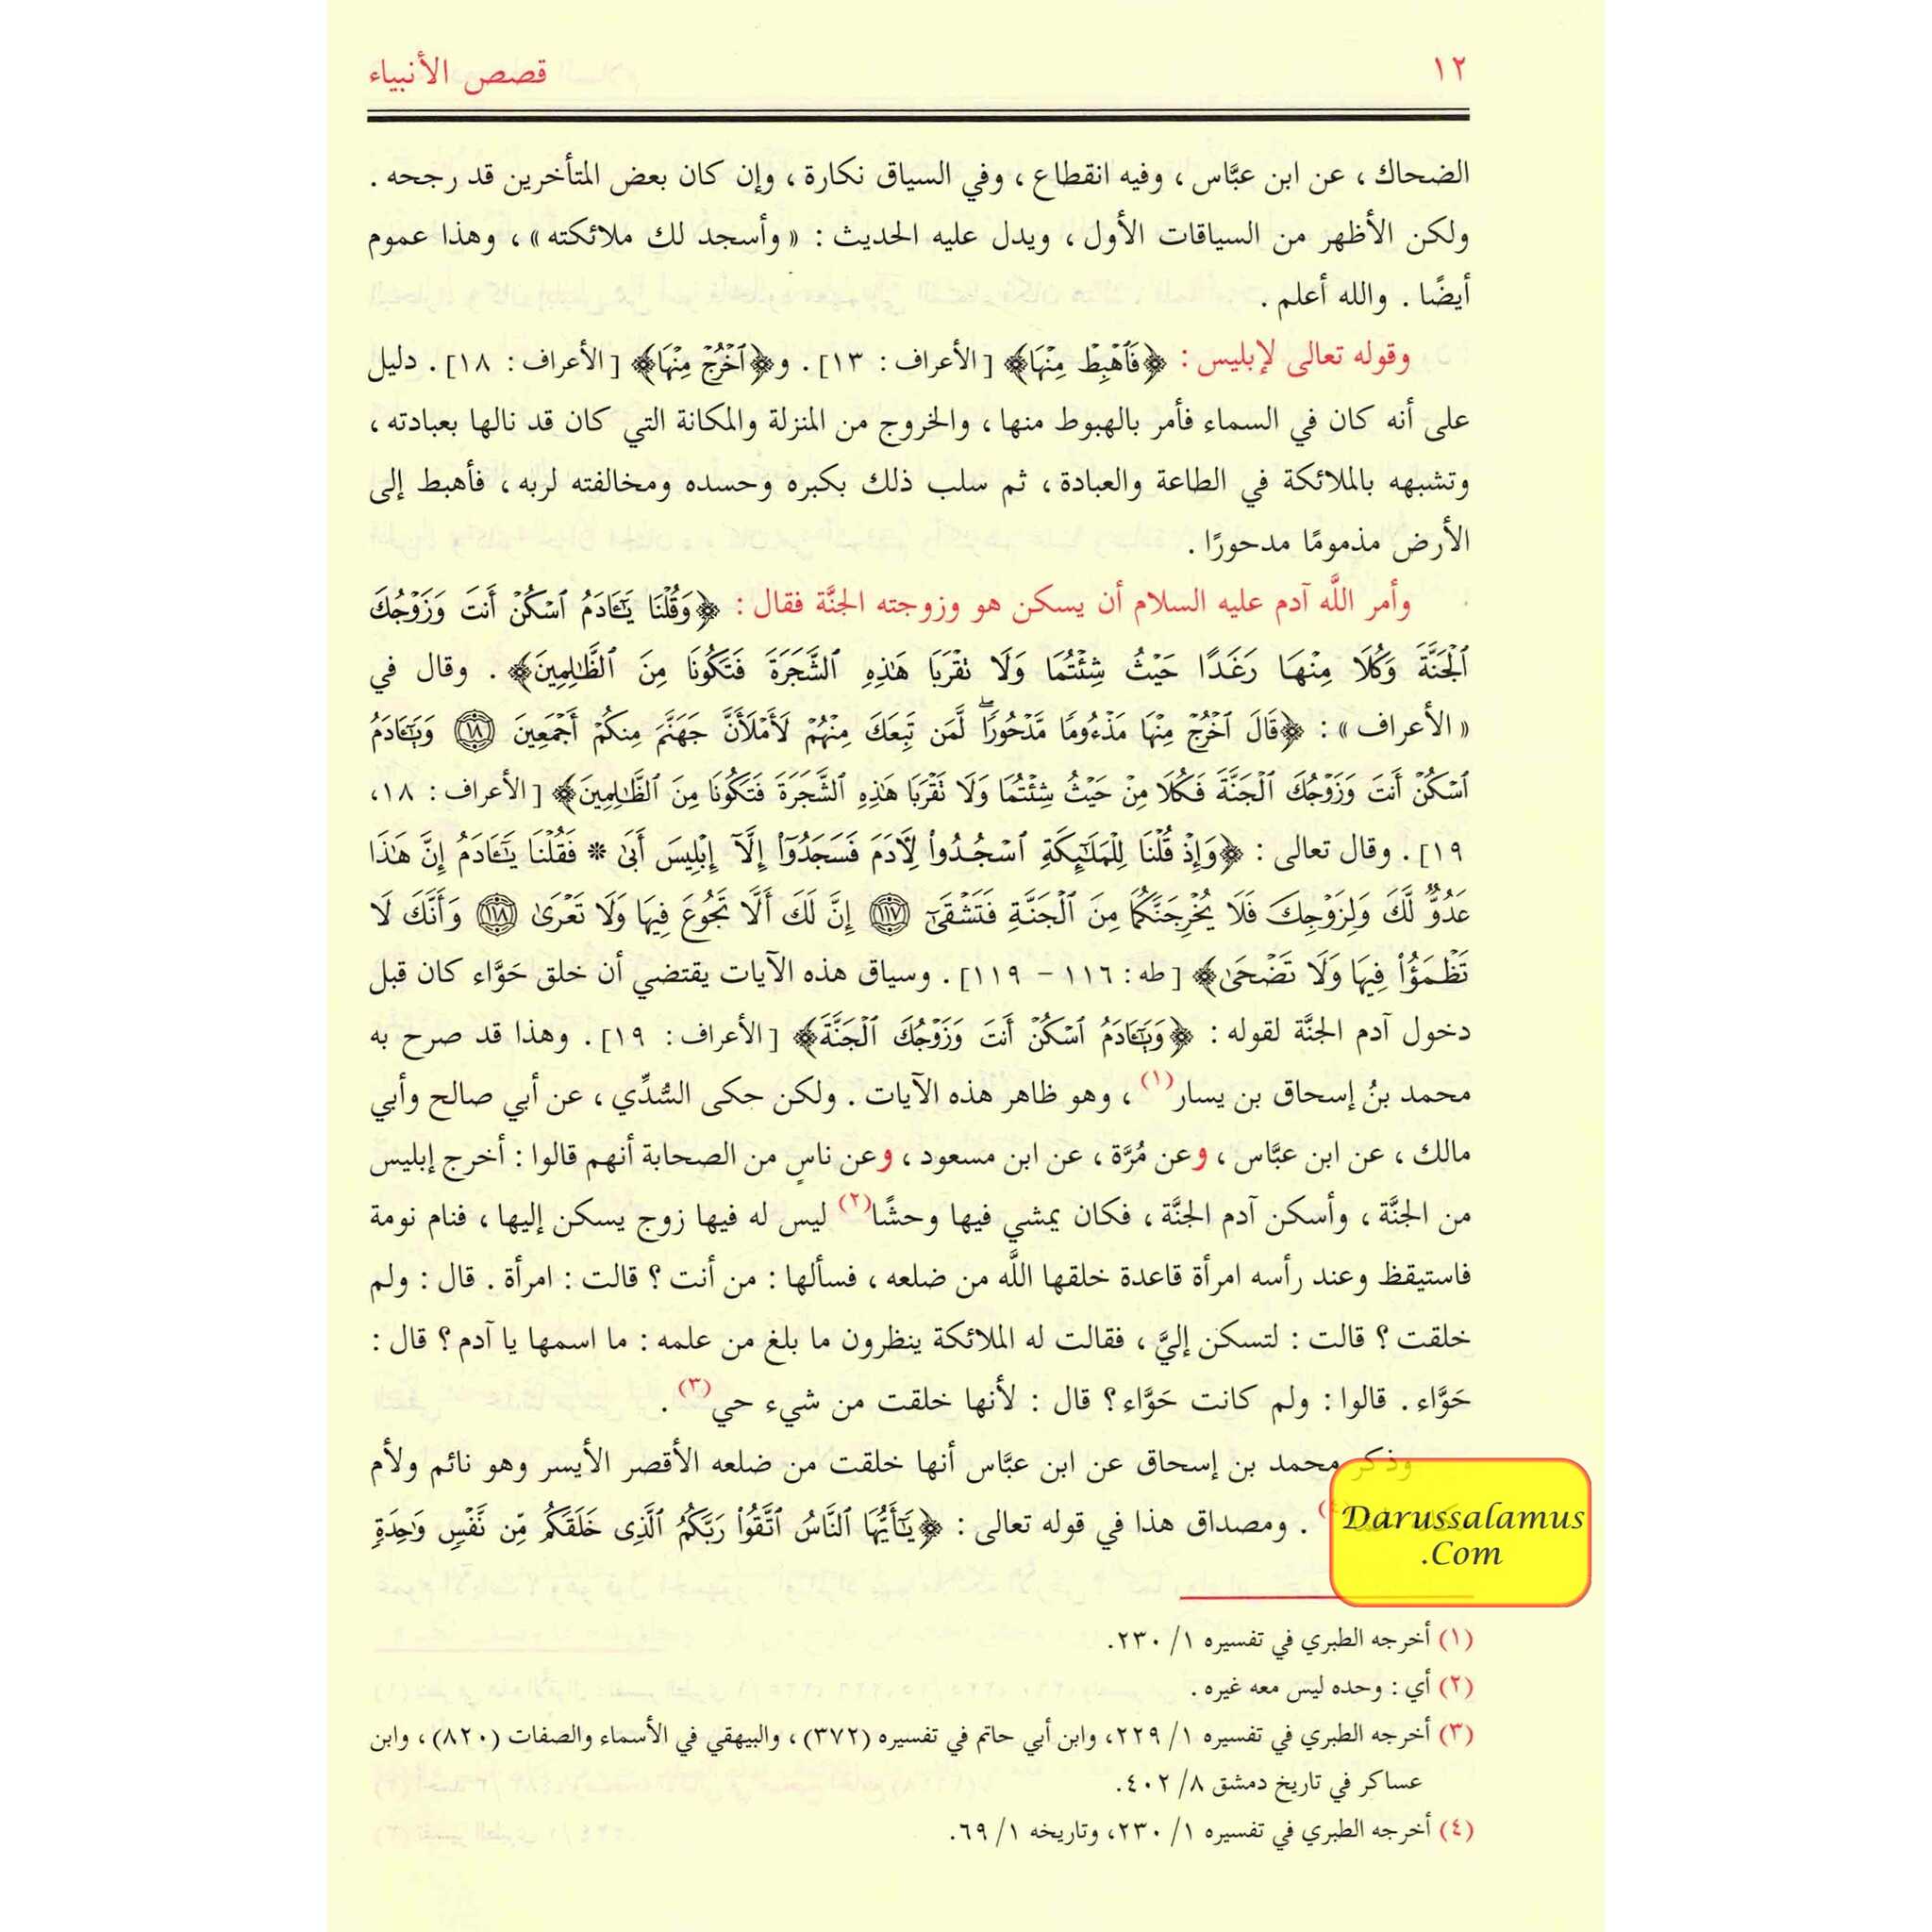 ١٢ قصص الأنبياء
الضحاك ، عن ابن عبَّاس ، وفيه انقطاع ، وفي السياق نكارة ، وإن كان بعض المتأخرين قد رجحه .
ولكن الأظهر من السياقات الأول ، ويدل عليه الحديث : « وأسجد لك ملائكته » ، وهذا عموم
أيضًا . والله أعلم .
وقوله تعالى لإبليس : ﴿فَٱهْبِطْ مِنْهَا﴾ [الأعراف : ١٣] . و﴿ٱخْرُجْ مِنْهَا﴾ [الأعراف : ١٨] . دليل
على أنه كان في السماء فأمر بالهبوط منها ، والخروج من المنزلة والمكانة التي كان قد نالها بعبادته ،
وتشبهه بالملائكة في الطاعة والعبادة ، ثم سلب ذلك بكبره وحسده ومخالفته لربه ، فأهبط إلى
الأرض مذمومًا مدحورًا .
وأمر اللَّه آدم عليه السلام أن يسكن هو وزوجته الجنَّة فقال : ﴿وَقُلْنَا يَٰٓـَٔادَمُ ٱسْكُنْ أَنتَ وَزَوْجُكَ
ٱلْجَنَّةَ وَكُلَا مِنْهَا رَغَدًا حَيْثُ شِئْتُمَا وَلَا تَقْرَبَا هَٰذِهِ ٱلشَّجَرَةَ فَتَكُونَا مِنَ ٱلظَّٰلِمِينَ﴾ . وقال في
« الأعراف » : ﴿قَالَ ٱخْرُجْ مِنْهَا مَذْءُومًا مَّدْحُورًا ۖ لَّمَن تَبِعَكَ مِنْهُمْ لَأَمْلَأَنَّ جَهَنَّمَ مِنكُمْ أَجْمَعِينَ ١٨ وَيَٰٓـَٔادَمُ
ٱسْكُنْ أَنتَ وَزَوْجُكَ ٱلْجَنَّةَ فَكُلَا مِنْ حَيْثُ شِئْتُمَا وَلَا تَقْرَبَا هَٰذِهِ ٱلشَّجَرَةَ فَتَكُونَا مِنَ ٱلظَّٰلِمِينَ﴾ [الأعراف : ١٨،
١٩] . وقال تعالى : ﴿وَإِذْ قُلْنَا لِلْمَلَٰٓئِكَةِ ٱسْجُدُوا۟ لِأَدَمَ فَسَجَدُوٓا۟ إِلَّآ إِبْلِيسَ أَبَىٰ * فَقُلْنَا يَٰٓـَٔادَمُ إِنَّ هَٰذَا
عَدُوٌّ لَّكَ وَلِزَوْجِكَ فَلَا يُخْرِجَنَّكُمَا مِنَ ٱلْجَنَّةِ فَتَشْقَىٰٓ ١١٧ إِنَّ لَكَ أَلَّا تَجُوعَ فِيهَا وَلَا تَعْرَىٰ ١١٨ وَأَنَّكَ لَا
تَظْمَؤُا۟ فِيهَا وَلَا تَضْحَىٰ﴾ [طه : ١١٦ – ١١٩] . وسياق هذه الآيات يقتضي أن خلق حَوَّاء كان قبل
دخول آدم الجنَّة لقوله : ﴿وَيَٰٓـَٔادَمُ ٱسْكُنْ أَنتَ وَزَوْجُكَ ٱلْجَنَّةَ﴾ [الأعراف : ١٩] . وهذا قد صرح به
محمد بنُ إسحاق بن يسار(١) ، وهو ظاهر هذه الآيات . ولكن حكى السُّدِّي ، عن أبي صالح وأبي
مالك ، عن ابن عبَّاس ، وعن مُرَّة ، عن ابن مسعود ، وعن ناسٍ من الصحابة أنهم قالوا : أخرج إبليس
من الجنَّة ، وأسكن آدم الجنَّة ، فكان يمشي فيها وحشًا(٢) ليس له فيها زوج يسكن إليها ، فنام نومة
فاستيقظ وعند رأسه امرأة قاعدة خلقها اللَّه من ضلعه ، فسألها : من أنت ؟ قالت : امرأة . قال : ولم
خلقت ؟ قالت : لتسكن إليَّ ، فقالت له الملائكة ينظرون ما بلغ من علمه : ما اسمها يا آدم ؟ قال :
حَوَّاء . قالوا : ولم كانت حَوَّاء ؟ قال : لأنها خلقت من شيء حي(٣) .
وذكر محمد بن إسحاق عن ابن عبَّاس أنها خلقت من ضلعه الأقصر الأيسر وهو نائم ولأم
. ومصداق هذا في قوله تعالى : ﴿يَٰٓأَيُّهَا ٱلنَّاسُ ٱتَّقُوا۟ رَبَّكُمُ ٱلَّذِى خَلَقَكُم مِّن نَّفْسٍ وَٰحِدَةٍ
Darussalamus
.Com
(١) أخرجه الطبري في تفسيره ١/ ٢٣٠.
(٢) أي : وحده ليس معه غيره .
(٣) أخرجه الطبري في تفسيره ١/ ٢٢٩، وابن أبي حاتم في تفسيره (٣٧٢) ، والبيهقي في الأسماء والصفات (٨٢٠) ، وابن
عساكر في تاريخ دمشق ٨/ ٤٠٢.
(٤) أخرجه الطبري في تفسيره ١/ ٢٣٠، وتاريخه ١/ ٦٩.